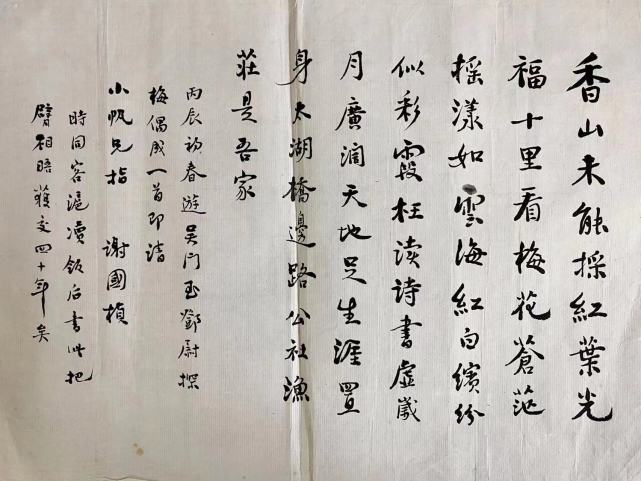 香山未能採紅葉光
福十里看梅花蒼茫
搖漾如雲海紅白繽紛
似彩霞枉读诗書虛歲
月廣闊天地足生涯置
身太湖橋邊路公社漁
莊是吾家
丙辰初春遊吴门至鄧尉探
梅偶成一首即請
小帆兄指 謝國楨
時同客滬瀆飯后書此把
臂相晤獲交四十年矣